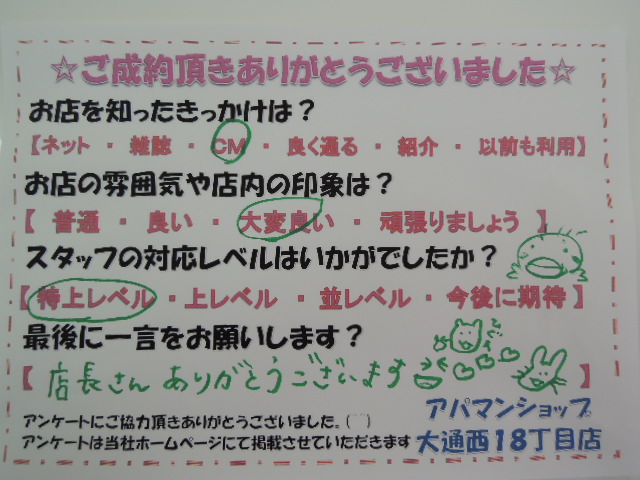 ☆ご成約頂きありがとうございました☆
お店を知ったきっかけは?
【ネット ・ 雑誌 ・ CM ・ 良く通る ・ 紹介 ・ 以前も利用】
お店の雰囲気や店内の印象は?
【 普通 ・ 良い ・ 大変良い ・ 頑張りましょう 】
スタッフの対応レベルはいかがでしたか?
【特上レベル ・ 上レベル ・ 並レベル ・ 今後に期待】
最後に一言をお願いします?
【 店長さん ありがとうございます 】
アンケートにご協力頂きありがとうございました。(⌒⌒)
アンケートは当社ホームページにて掲載させていただきます
アパマンショップ
大通西18丁目店